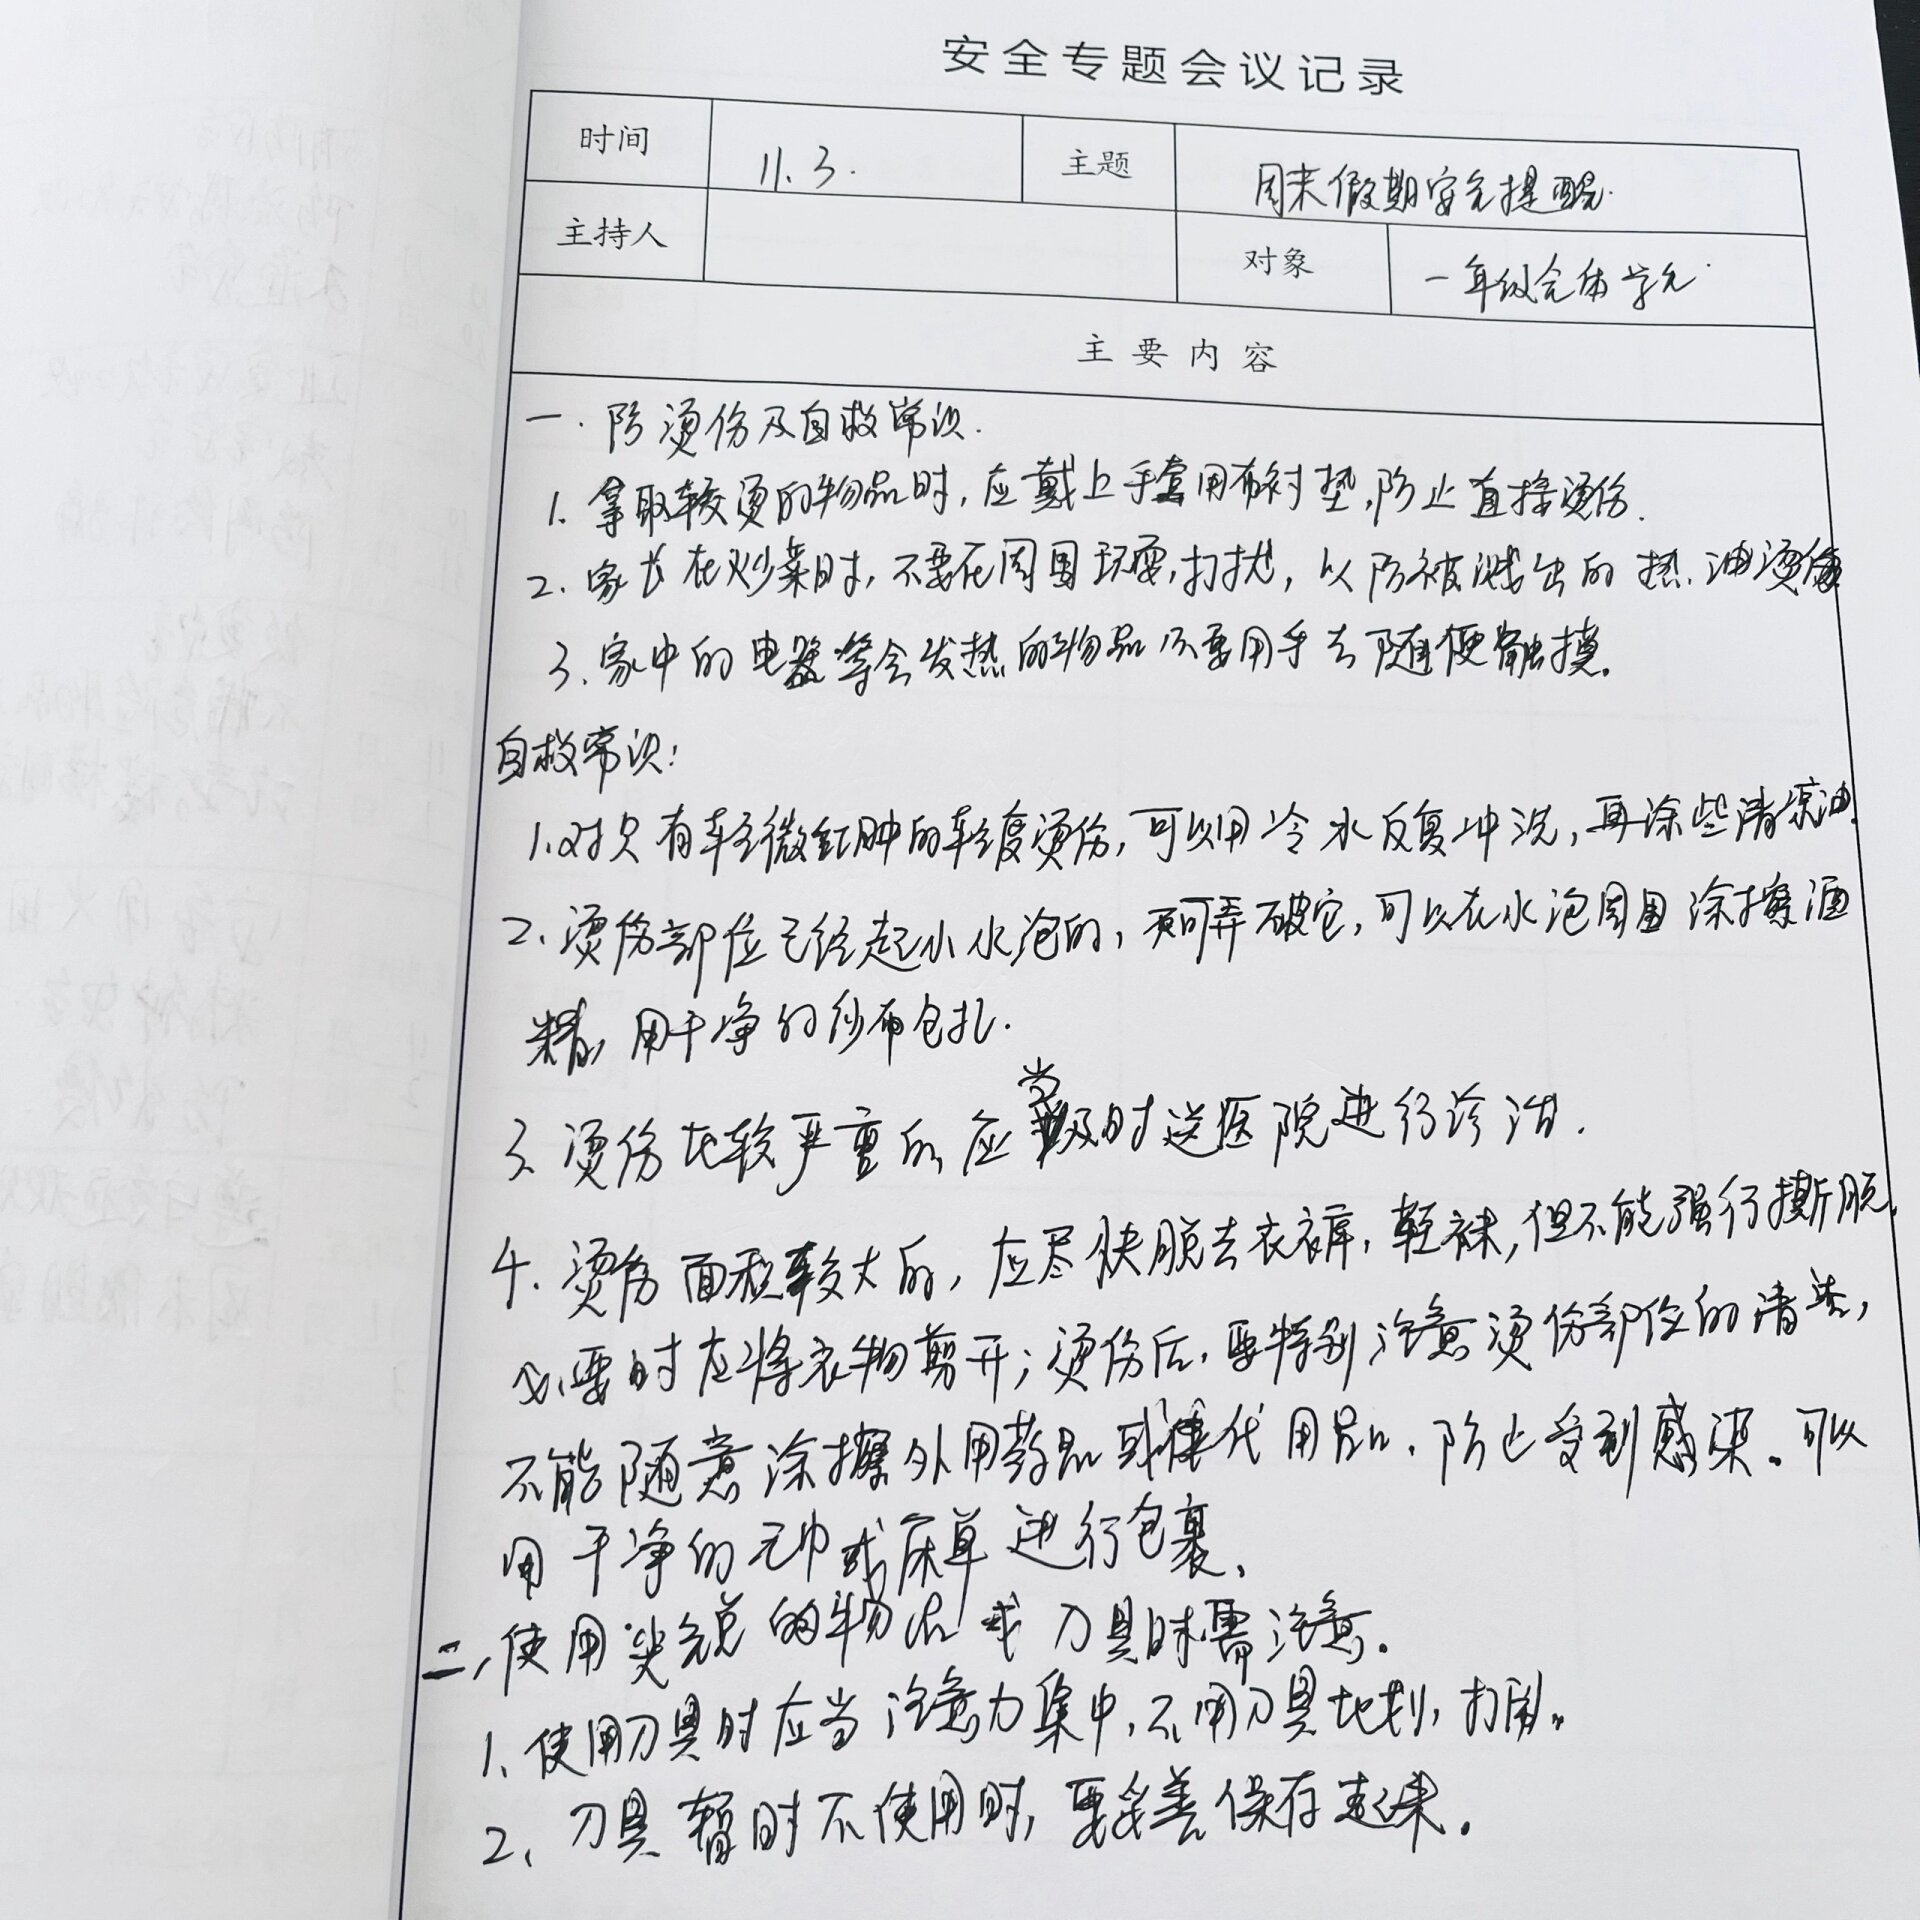 安全专题会议记录
时间 11.3. 主题 周末假期安全提醒.
主持人 对象 一年级全体学生.
主要内容
一. 防烫伤及自救常识.
1. 拿取较烫的物品时,应戴上手套用布衬垫,防止直接烫伤.
2. 家长在炒菜时,不要在周围玩耍,打扰,以防被溅出的热油烫伤
3. 家中的电器等会发热的物品不要用手去随便触摸.
自救常识:
1.对只有轻微红肿的轻度烫伤,可以用冷水反复冲洗,再涂些清凉油.
2. 烫伤部位已经起小水泡的,不可弄破它,可以在水泡周围涂擦酒
精,用干净的纱布包扎.
3. 烫伤比较严重的应当及时送医院进行诊治.
4. 烫伤面积较大的,应尽快脱去衣裤,鞋袜,但不能强行撕脱,
必要时应将衣物剪开;烫伤后,要特别注意烫伤部位的清洁,
不能随意涂擦外用药品或代用品,防止受到感染。可以
用干净的毛巾或床单进行包裹.
二、使用尖锐的物品或刀具时需注意.
1、使用刀具时应当注意力集中,不用刀具比划,打闹。
2、刀具暂时不使用时,要妥善保存起来.